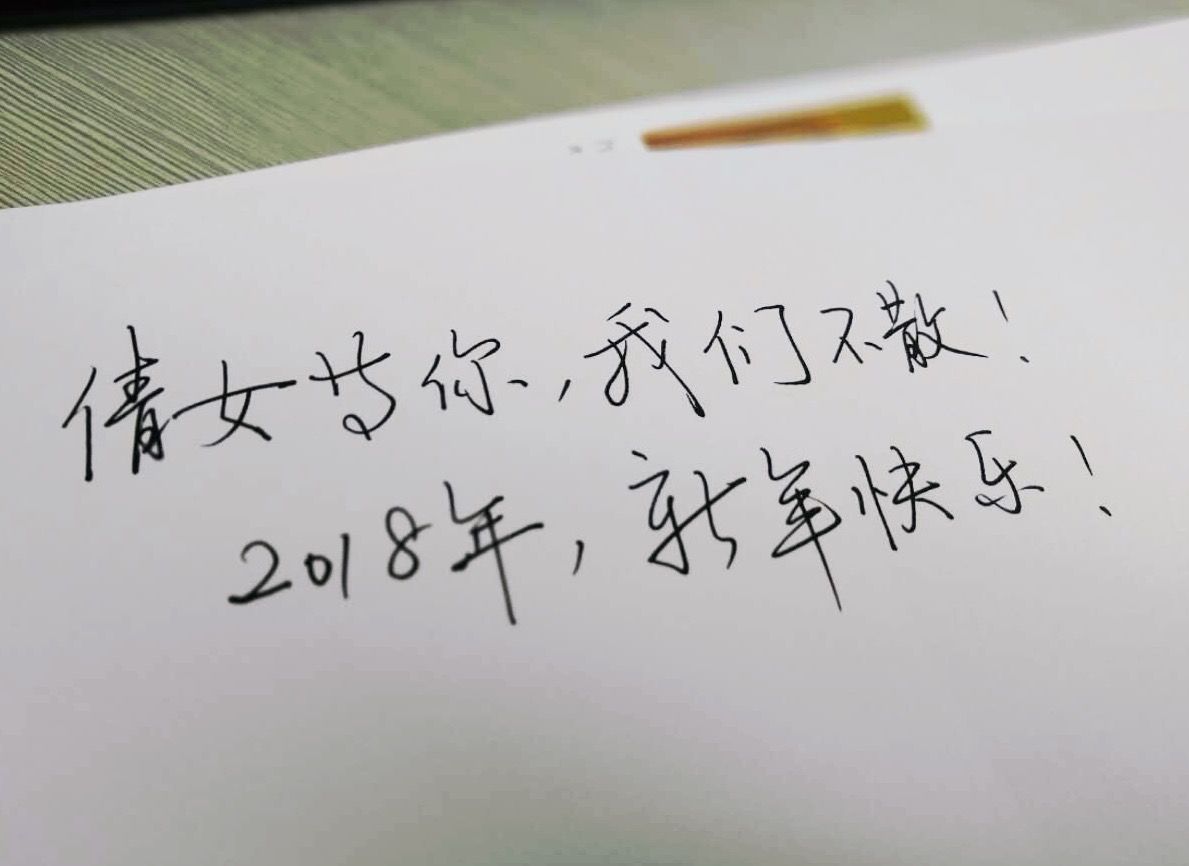 倩女等你,我们不散!
2018年,新年快乐!